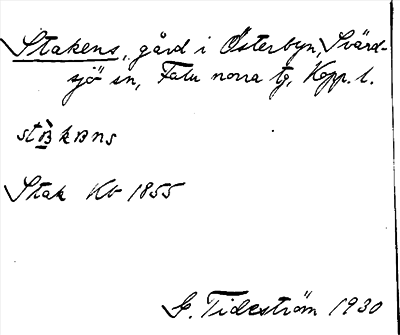 Stakens, gård i Österbyn, Svärd-
sjö sn, Falu norra tg, Kopp. l.
stàkans
Stak Kb 1855
G. Tideström 1930